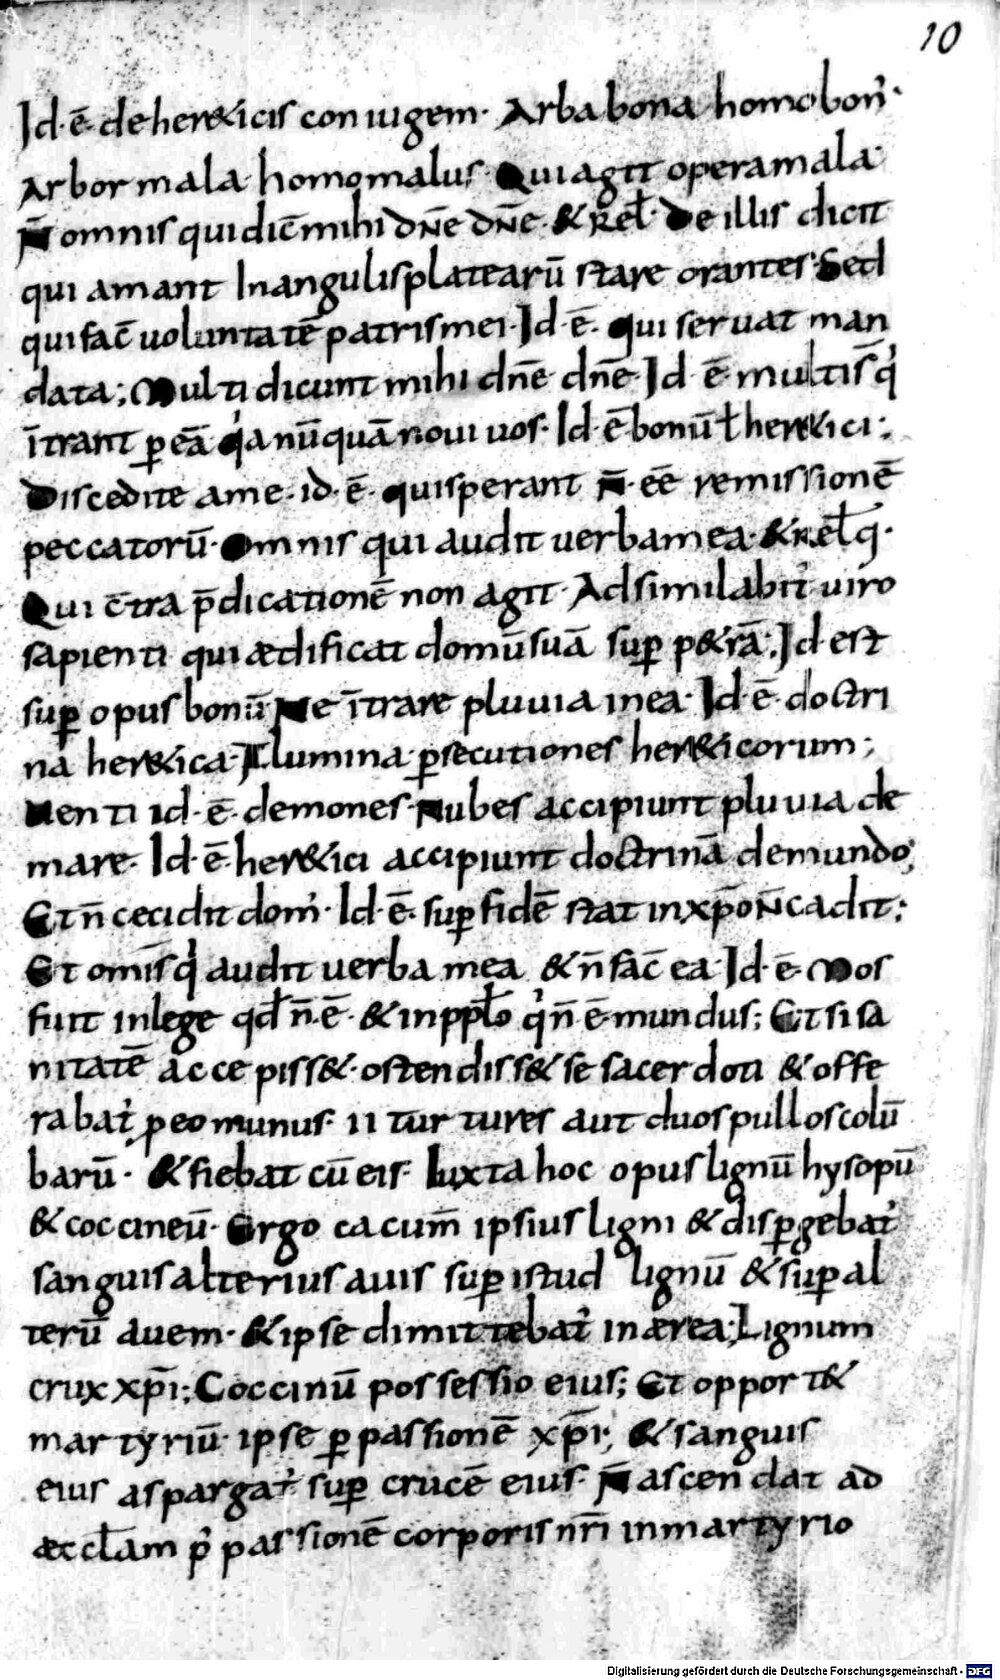 10
Id·ē· de her&icis coniugem· Arba bona homo bon᾿·
Arbor mala homo malus· Qui agit opera mala·
N̄ omnis qui dic̄ mihi dn̄e dn̄e· & rel̄· De illis dicit
qui amant In angulis platearū stare orantes· Sed
qui fac̄ uoluntatē patris mei· Id·ē· qui seruat man
data; Multi dicunt mihi dn̄e dn̄e· Id·ē· multi s̄ q᾿
ītrant p̱ eā q᾿a nūquā noui uos· Id·ē bonū ł her&ici;
Discedite a me· id·ē· qui sperant n̄· eē remissionē
peccatorū· Omnis qui audit uerba mea· & rel̄q·
Qui c̄tra p̄dicationē non agit· Adsimilabit᾿ uiro
sapienti qui ædificat domū suā sup̱ p&rā; Id est
sup̱ opus bonū Ne ītrare pluuia in ea· Id·ē· doctri
na her&ica· Flumina p̱secutiones her&icorum;
Uenti id·ē· demones· Nubes accipiunt pluuia de
mare· Id·ē· her&ici accipiunt doctrinā de mundo;
Et n̄ cecidit dom᾿· Id·ē· sup̱ fidē stat in xp̄o n̄ cadit;
Et omis̄ q᾿ audit uerba mea & n̄ fac̄ ea· Id·ē· Mos
fuit in lege qd̄ n̄·ē· & in ppl̄o q᾿ n̄ ē mundus; Et si sa
nitatē accepiss& ostendiss& se sacerdoti & offe
rabat᾿ p̱ eo munus· II turtures aut duos pullos colū
barū· & fiebat cū eis· Iuxta hoc opus lignū hysopū
& coccineū· Ergo cacum̄ ipsius ligni & disp̱gebat᾿
sanguis alterius auis sup̱ istud lignū & sup̱ al
terū auem· & ipse dimittebat᾿ in ærea; Lignum
crux xp̄i; Coccinū possessio eius; Et opport&
martyriū ipse p̱ passionē xp̄i; & sanguis
eius aspargat᾿ sup̱ crucē eius· N̄ ascendat ad
æccl̄am p᾿ passionē corporis nr̄i in martyrio
Digitalisierung gefördert durch die Deutsche Forschungsgemeinschaft - DFG